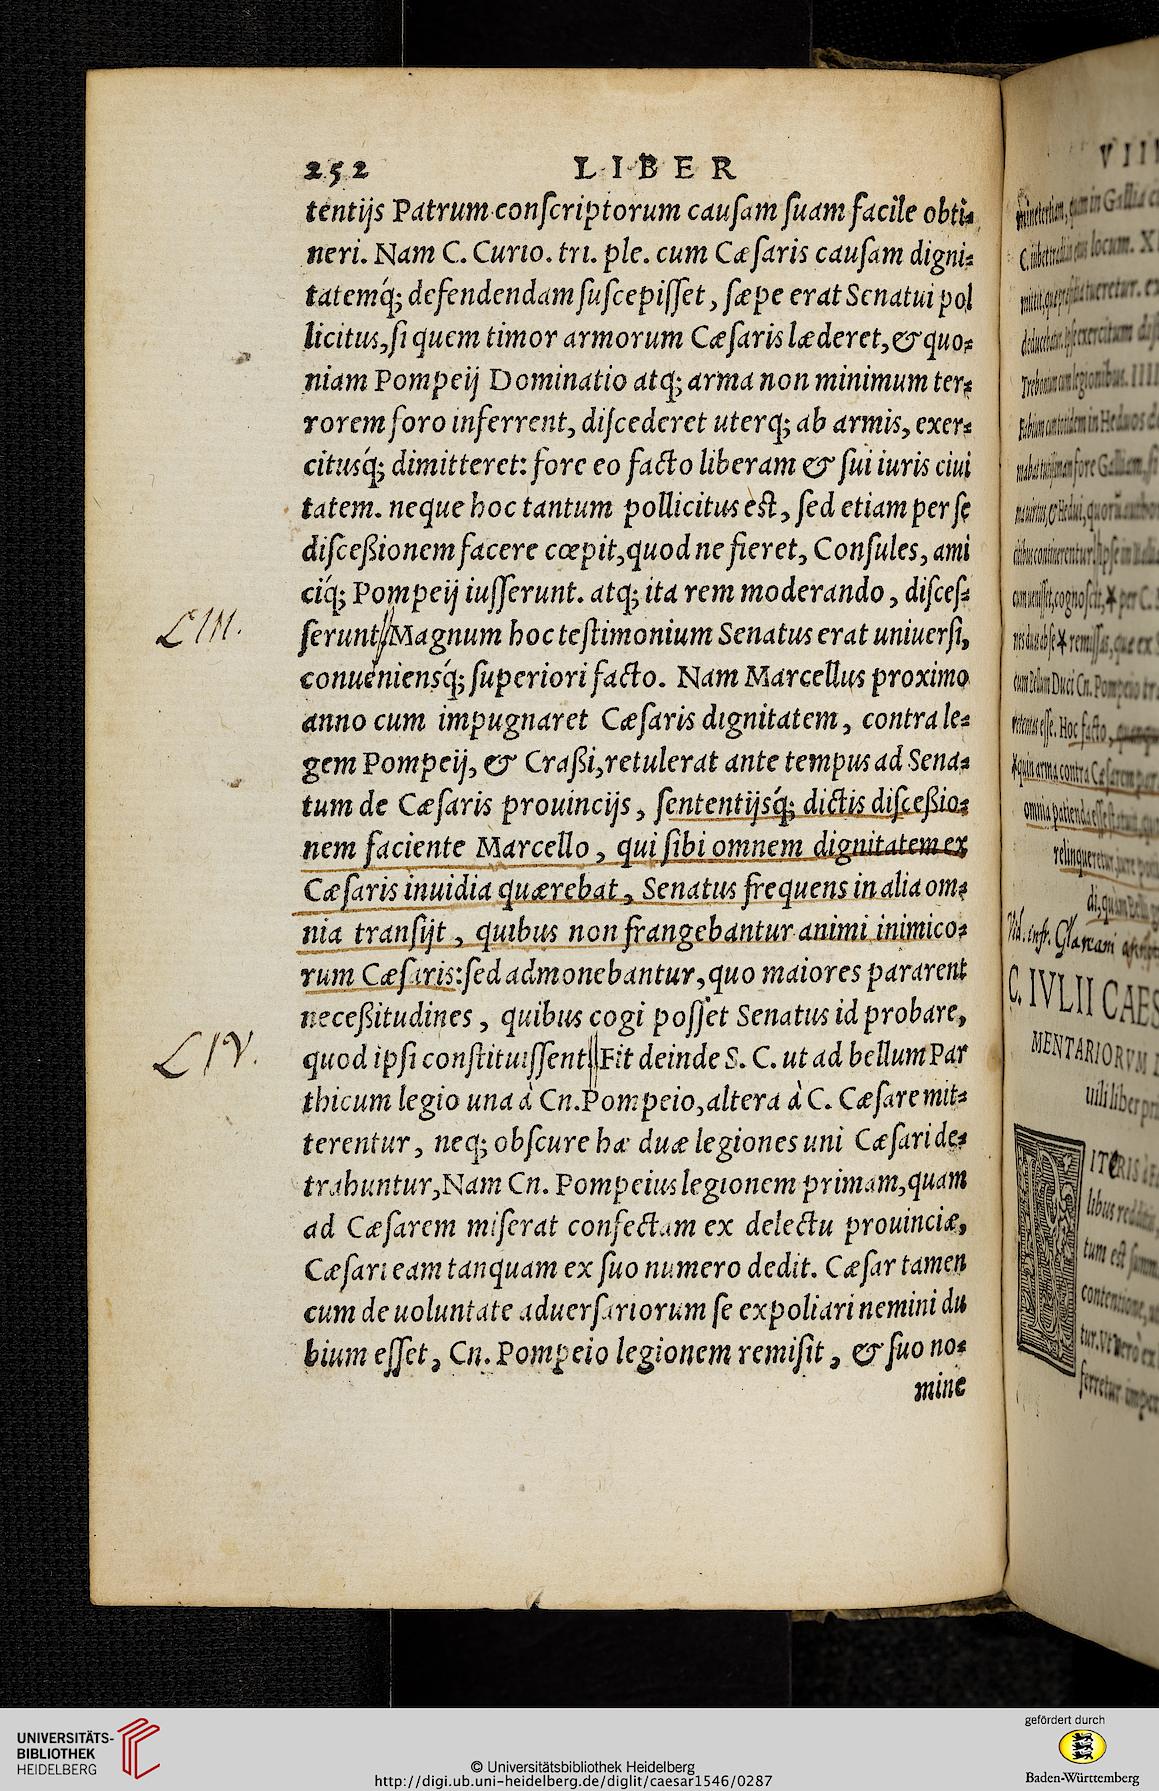 252 LIBER
tentijs Patrum conſcriptorum cauſam ſuam facile obti⸗
neri. Nam C. Curio. tri. ple. cum Cæſaris cauſam digni⸗
tatemq́; defendendam ſuſcepiſſet, ſæpe erat Senatui pol
licitus, ſi quem timor armorum Cæſaris læderet, & quo⸗
niam Pompeij Dominatio atq; arma non minimum ter⸗
rorem foro inferrent, diſcederet uterq; ab armis, exer⸗
citusq́; dimitteret: fore eo facto liberam & ſui iuris ciui
tatem. neque hoc tantum pollicitus eſt, ſed etiam per ſe
diſceßionem facere cœpit, quod ne fieret, Conſules, ami
ciq́; Pompeij iuſſerunt. atq; ita rem moderando, diſceſ⸗
LIII.
ſerunt. Magnum hoc teſtimonium Senatus erat uniuerſi,
conueniensq́; ſuperiori facto. Nam Marcellus proximo
anno cum impugnaret Cæſaris dignitatem, contra le⸗
gem Pompeij, & Craßi, retulerat ante tempus ad Sena⸗
tum de Cæſaris prouincijs, ſententijsq́; dictis diſceßio⸗
nem faciente Marcello, qui ſibi omnem dignitatem ex
Cæſaris inuidia quærebat, Senatus frequens in alia om⸗
nia tranſijt, quibus non frangebantur animi inimico⸗
rum Cæſaris: ſed admonebantur, quo maiores pararent
neceßitudines, quibus cogi poſſet Senatus id probare,
LIV.
quod ipſi conſtituiſſent. Fit deinde S. C. ut ad bellum Par
thicum legio una à Cn. Pompeio, altera à C. Cæſare mit⸗
terentur, neq; obſcure hæ duæ legiones uni Cæſari de⸗
trahuntur, Nam Cn. Pompeius legionem primam, quam
ad Cæſarem miſerat confectam ex delectu prouinciæ,
Cæſari eam tanquam ex ſuo numero dedit. Cæſar tamen
cum de uoluntate aduerſariorum ſe expoliari nemini du
bium eſſet, Cn. Pompeio legionem remiſit, & ſuo no⸗
mine
VIII
Vid. infr. Glareani
C. IVLII CAES
MENTARIORVM
uili liber pri
UNIVERSITÄTS-
BIBLIOTHEK
HEIDELBERG
© Universitätsbibliothek Heidelberg
http://digi.ub.uni-heidelberg.de/diglit/caesar1546/0287
gefördert durch
Baden-Württemberg